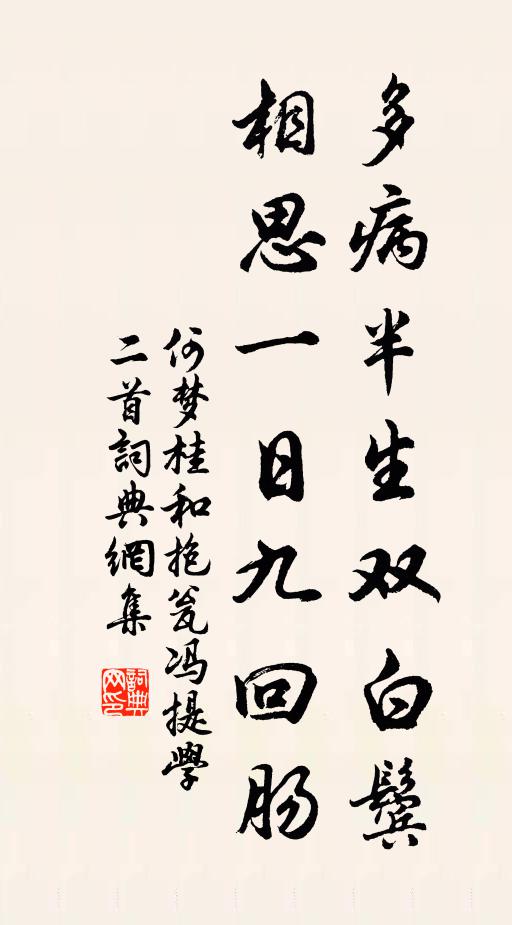 多病半生双白鬓
相思一日九回肠
何梦桂和抱瓮冯提學
二首詞典網集
詞典
网印